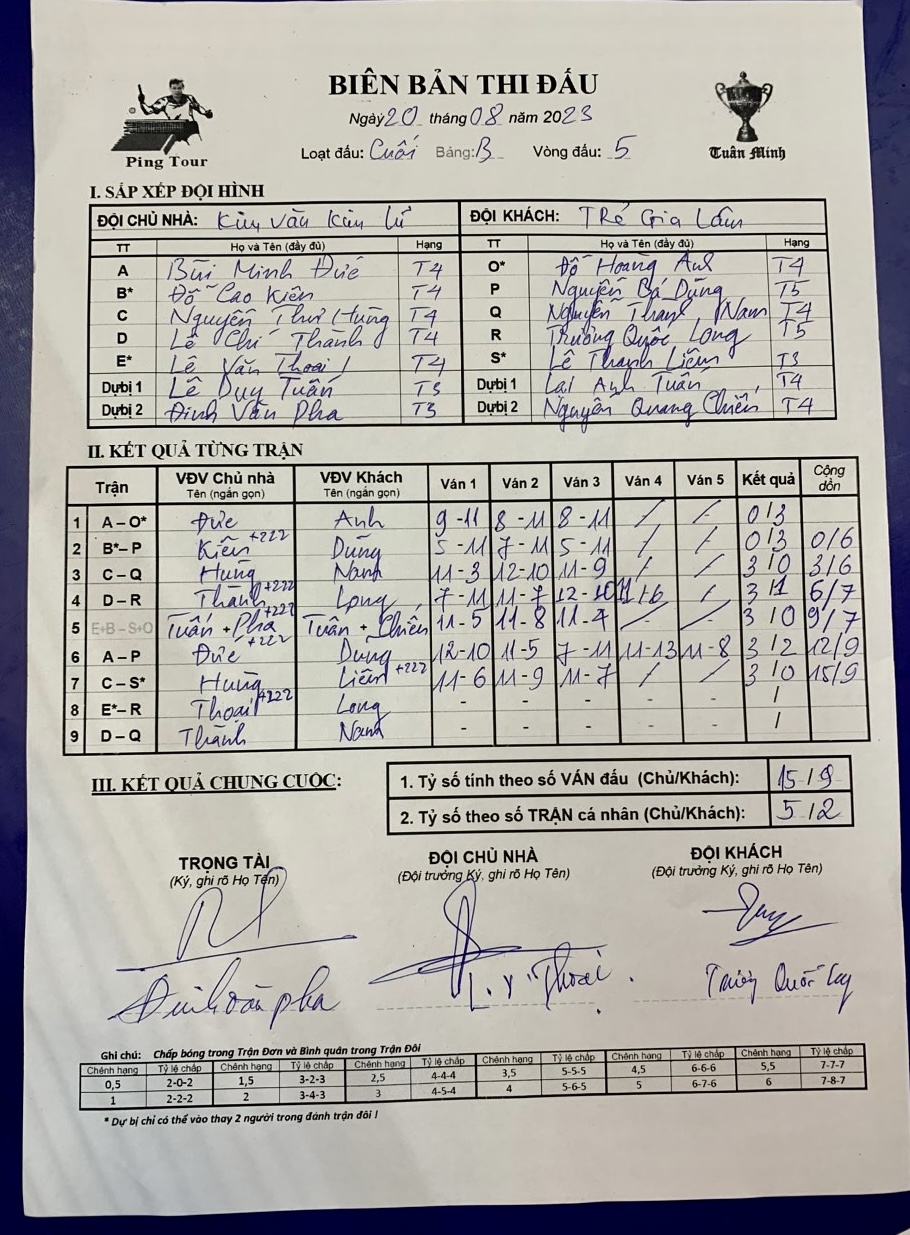 BIÊN BẢN THI ĐẤU
Ngày 20 tháng 08 năm 2023
Ping Tour
Loạt đấu: Cuối Bảng: B Vòng đấu: 5
Tuấn Minh
I. SẮP XẾP ĐỘI HÌNH
ĐỘI CHỦ NHÀ: Kim Văn Kim Lũ ĐỘI KHÁCH: TRẻ Gia Lâm
TT Họ và Tên (đầy đủ) Hạng TT Họ và Tên (đầy đủ) Hạng
A Bùi Minh Đức T4 O* Đỗ Hoàng Anh T4
B* Đỗ Cao Kiên T4 P Nguyễn Bá Dũng T5
C Nguyễn Như Hùng T4 Q Nguyễn Thanh Nam T4
D Lê Chí Thành T4 R Trương Quốc Long T5
E* Lê Văn Thoại T4 S* Lê Thanh Liêm T3
Dự bị 1 Lê Duy Tuấn T3 Dự bị 1 Lại Anh Tuấn T4
Dự bị 2 Đinh Văn Pha T3 Dự bị 2 Nguyễn Quang Chiến T4
II. KẾT QUẢ TỪNG TRẬN
Trận VĐV Chủ nhà Tên (ngắn gọn) VĐV Khách Tên (ngắn gọn) Ván 1 Ván 2 Ván 3 Ván 4 Ván 5 Kết quả Cộng dồn
1 A – O* Đức Anh 9-11 8-11 8-11 / / 0/3
2 B* – P Kiên +222 Dũng 5-11 7-11 5-11 / / 0/3 0/6
3 C – Q Hùng Nam 11-3 12-10 11-9 / / 3/0 3/6
4 D – R Thành +222 Long 7-11 11-7 12-10 11/6 / 3/1 6/7
5 E+B – S+O Tuấn + Pha +222 Tuấn + Chiến 11-5 11-8 11-4 / / 3/0 9/7
6 A – P Đức +222 Dung 12-10 11-5 7-11 11-13 11-8 3/2 12/9
7 C – S* Hùng Liêm +222 11-6 11-9 11-7 / / 3/0 15/9
8 E* – R Thoại +222 Long - - - /
9 D – Q Thành Nam - - - /
III. KẾT QUẢ CHUNG CUỘC:
1. Tỷ số tính theo số VÁN đấu (Chủ/Khách): 15/9
2. Tỷ số theo số TRẬN cá nhân (Chủ/Khách): 5/2
TRỌNG TÀI ĐỘI CHỦ NHÀ ĐỘI KHÁCH
(Ký, ghi rõ Họ Tên) (Đội trưởng Ký, ghi rõ Họ Tên) (Đội trưởng Ký, ghi rõ Họ Tên)
Đinh Văn pha L.V Thoại Trương Quốc Long
Ghi chú: Chấp bóng trong Trận Đơn và Bình quân trong Trận Đôi
Chênh hạng Tỷ lệ chấp Chênh hạng Tỷ lệ chấp Chênh hạng Tỷ lệ chấp Chênh hạng Tỷ lệ chấp Chênh hạng Tỷ lệ chấp Chênh hạng Tỷ lệ chấp
0,5 2-0-2 1,5 3-2-3 2,5 4-4-4 3,5 5-5-5 4,5 6-6-6 5,5 7-7-7
1 2-2-2 2 3-4-3 3 4-5-4 4 5-6-5 5 6-7-6 6 7-8-7
* Dự bị chỉ có thể vào thay 2 người trong đánh trận đôi !